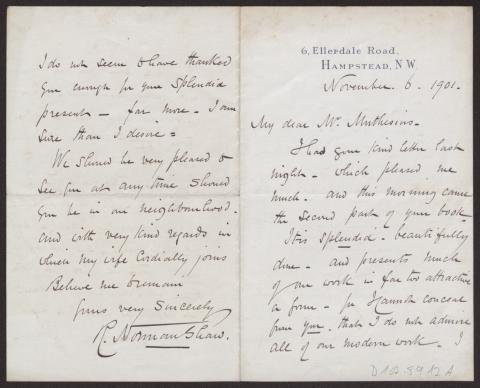 6, Ellerdale Road,
Hampstead, N.W.
November. 6. 1901.
My dear Mr. Muthesius.
I had your kind letter last
night - which pleased me
much. and this morning came
the second part of your book -
It is splendid. beautifully
done - and presents much
of our work in far too attractive
a form - for I cannot conceal
from you. that I do not admire
all of our modern work - I
do not seem to have thanked
you enough for your splendid
present - far more. I am
sure than I desire =
We should be very pleased to
see you at any time should
you be in our neighbourhood.
and with very kind regards in
which my wife cordially joins
Believe me to remain
Yours very Sincerely
R. Norman Shaw.
D102-5912 A